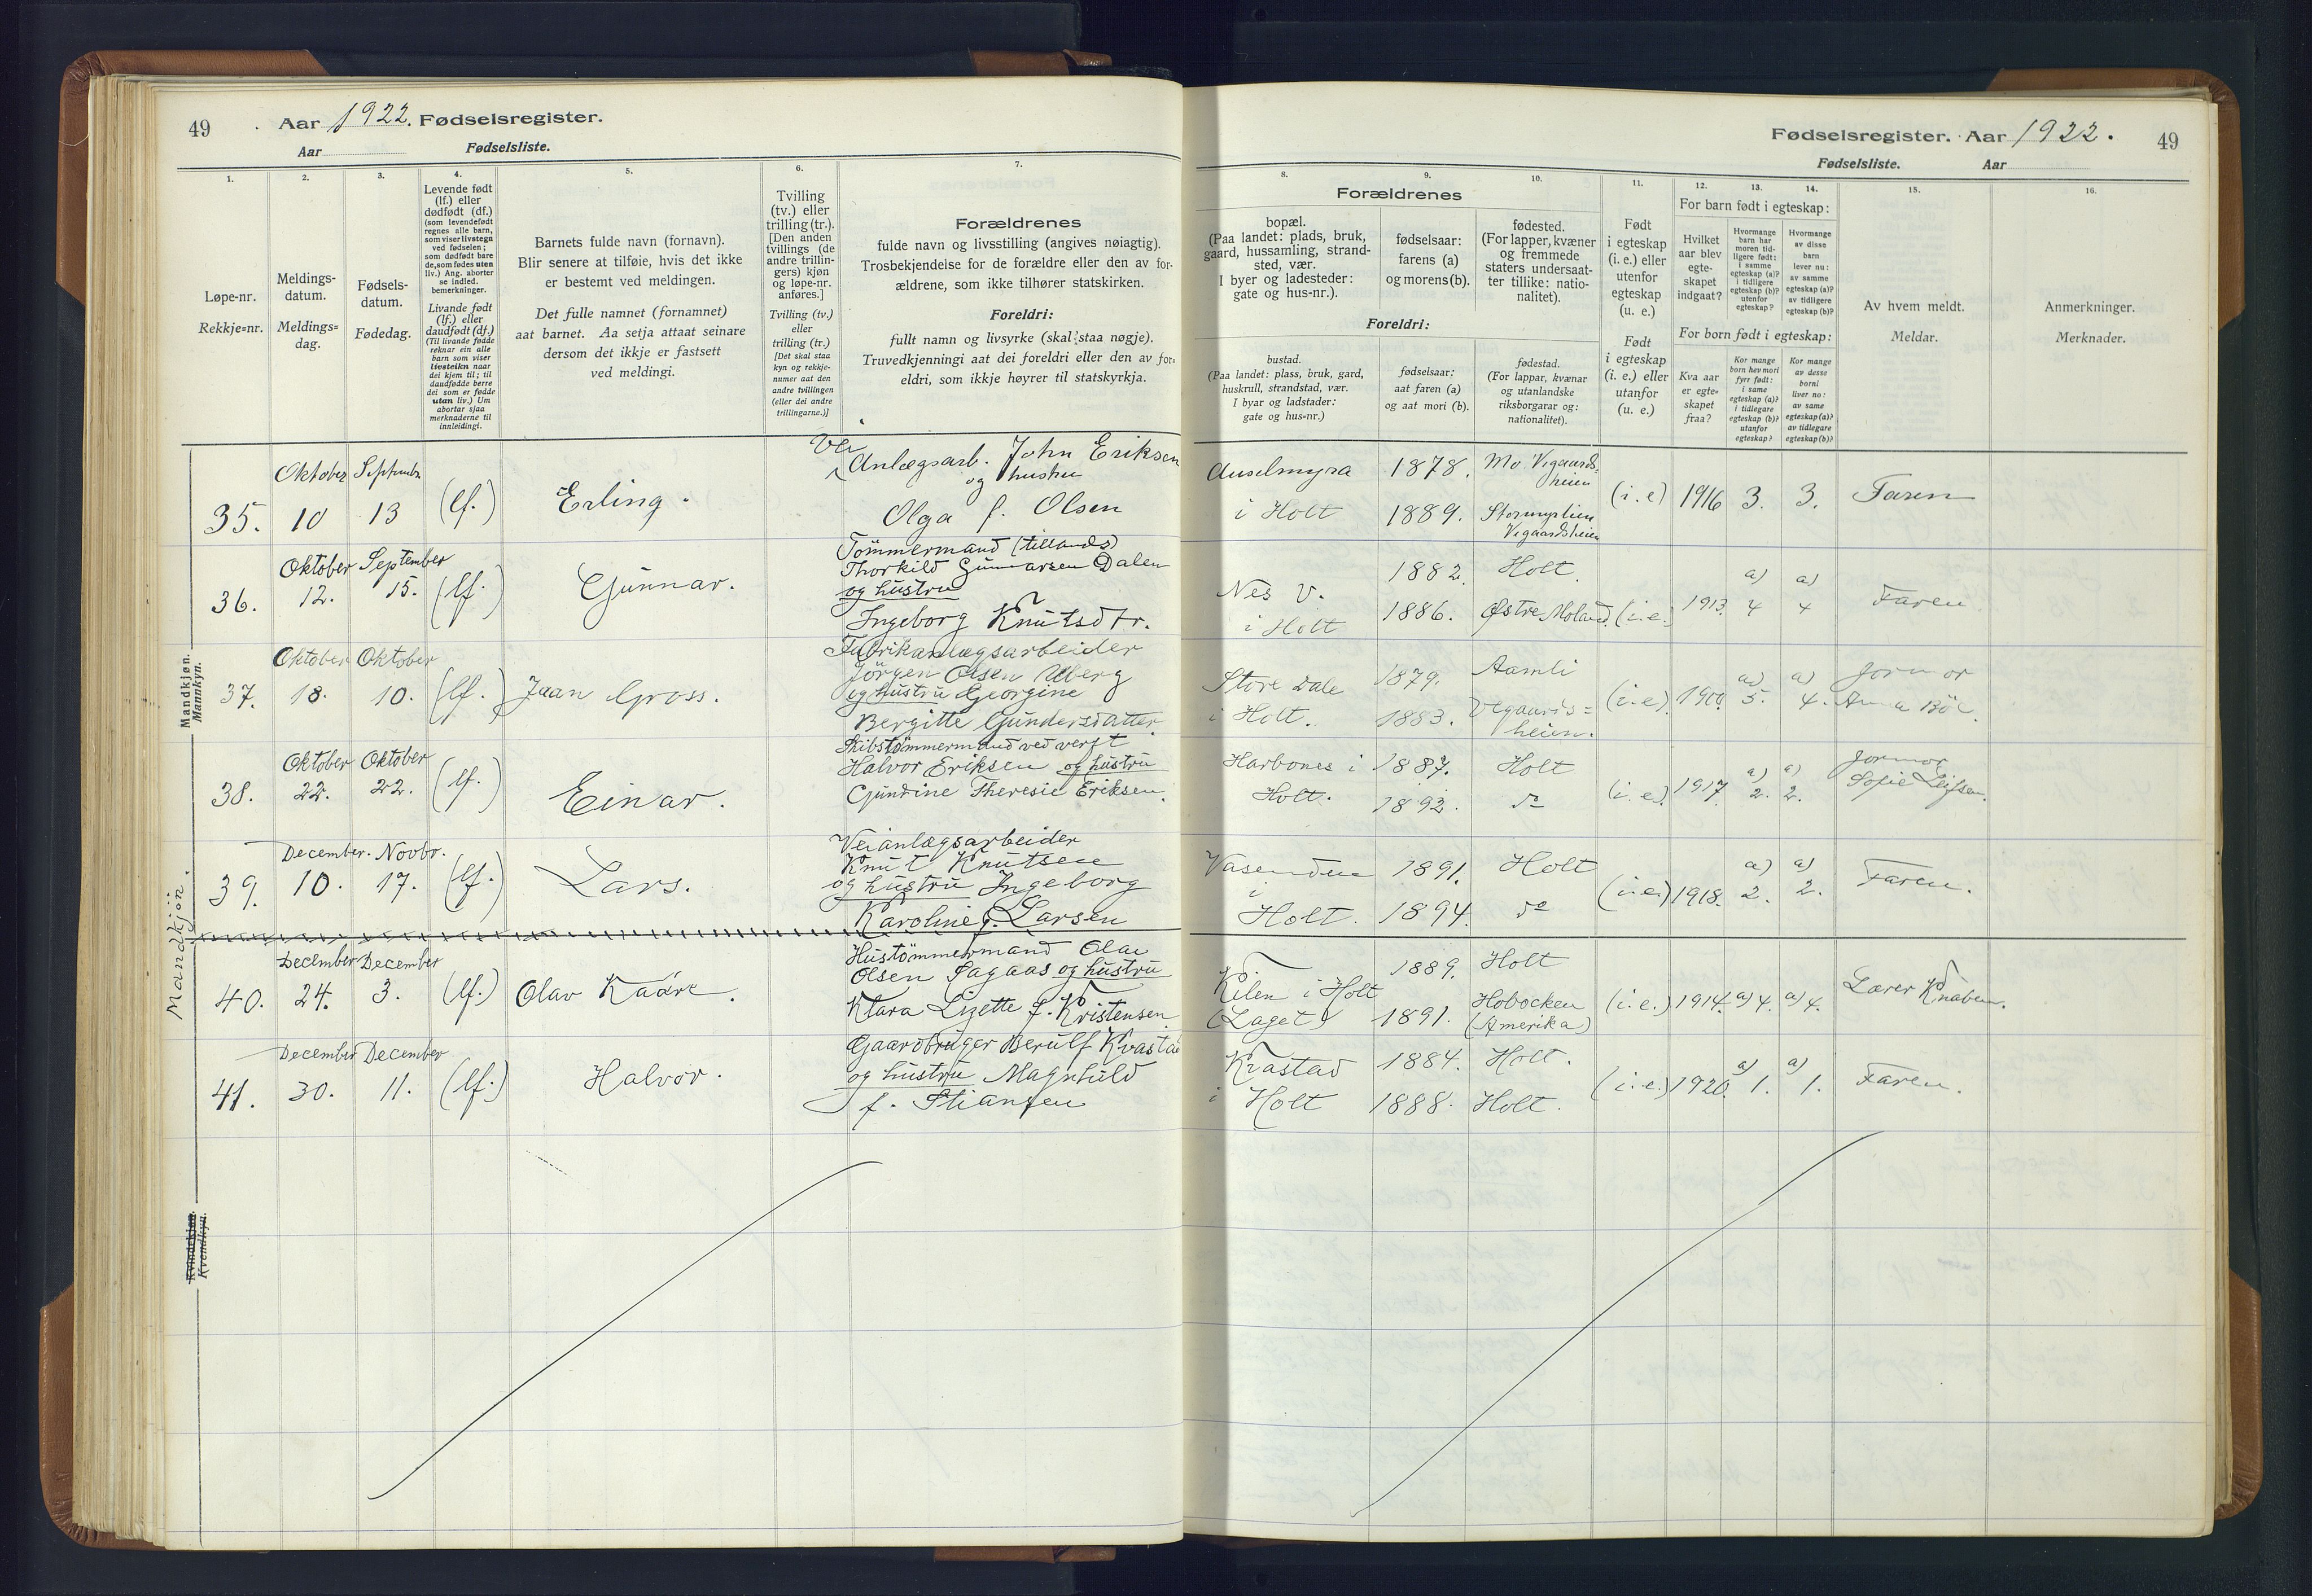 49
Aar 1922. Fødselsregister.
Aar
Fødselsliste.
1.
Løpe-nr.
Rekkje=nr.
2.
Meldings-
datum.
Meldings=
dag.
3.
Fødsels-
datum.
Fødedag.
4.
Levende født
(lf.) eller
dødfødt (df.)
(som levendefødt
regnes alle barn,
som viser livstegn
ved fødselen;
som dødfødt bare
de, som fødes uten
liv.) Ang. aborter
se indled.
bemerkninger.
Livande født
(lf.) eller
daudfødt (df.)
(Til livande fødde
reknar ein alle
barn som viser
livsteikn naar
dei kjem til; til
daudfødde berre
dei som er fødde
utan liv.) Um
abortar sjaa
merknaderne til
innleidingi.
5.
Barnets fulde navn (fornavn).
Blir senere at tilføie, hvis det ikke
er bestemt ved meldingen.
Det fulle namnet (fornamnet)
aat barnet. Aa setja attaat seinare
dersom det ikkje er fastsett
ved meldingi.
6.
Tvilling
(tv.) eller
trilling (tr.).
[Den anden
tvillings (de
andre trillin-
gers) kjøn
og løpe-nr.
anføres.]
Tvilling (tv.)
eller
trilling (tr.)
[Det skal staa
kyn og rekkje-
numer aat den
andre tvillingen
(eller dei andre
trillingarne.)]
7.
Forældrenes
fulde navn og livsstilling (angives nøiagtig).
Trosbekjendelse for de forældre eller den av for-
ældrene, som ikke tilhører statskirken.
Foreldri:
fullt namn og livsyrke (skal staa nøgje).
Truvedkjenningi aat dei foreldri eller den av for=
eldri, som ikkje høyrer til statskyrkja.
Mandkjøn.
Mannkyn.
Mandkjön.
Kvindekjøn.
Kvendkyn.
35. Oktober 10 September 13 (lf.) Erling.
Vei
Anlægsarb. John Eriksen
og hustru
Olga f. Olsen
36. Oktober 12. September 15. (lf.) Gunnar.
Tömmermand (tillands)
Thorkild Gunnarsen Dalen
og hustru
Ingeborg Knutsdtr.
37. Oktober 18. Oktober 10. (lf.) Jaan Gross.
Fabrikanlægsarbeider
Jörgen Olsen Uberg
og hustru Georgine
Bergitte Gundersdatter.
38. Oktober 22. Oktober 22. (lf.) Einar.
Skibstömmermand ved verft
Halvor Eriksen og hustru
Gundine Theresie Eriksen.
39. December. 10. Novbr. 17. (lf.) Lars.
Veianlægsarbeider
Knut Knutsen
og hustru Ingeborg
Karoline f. Larsen
40. December 24. December 3. (lf.) Olav Kaare.
Hustömmermand Olav
Olsen Sagaas og hustru
Klara Lisette f. Kristensen
41. December 30. December 11. (lf.) Halvor.
Gaardbruger Berulf Kvastad
og hustru Magnhild
f. Stiansen
Fødselsregister. Aar 1922.
49
Fødselsliste.
Aar
8.
9.
10.
Forældrenes
bopæl.
(Paa landet: plads, bruk,
gaard, hussamling, strand-
sted, vær.
I byer og ladesteder:
gate og hus-nr.).
fødselsaar:
farens (a)
og morens (b).
fødested.
(For lapper, kvæner
og fremmede
staters undersaat-
ter tillike: natio-
nalitet).
Foreldri:
bustad.
(Paa landet: plass, bruk, gard,
huskrull, strandstad, vær.
I byar og ladstader:
gate og hus=nr.)
fødselsaar:
aat faren (a)
og aat mori (b).
fødestad.
(For lappar, kvænar
og utanlandske
riksborgarar og:
nationalitet).
11.
Født
i egteskap
(i. e.) eller
utenfor
egteskap
(u. e.)
Født
i egteskap
(i. e.) eller
utanfor
(u. e.)
12.
13.
14.
For barn født i egteskap:
Hvilket
aar blev
egte-
skapet
indgaat?
Hvormange
barn har
moren tid-
ligere født:
i samme
egteskap (a)?
i tidligere
egteskap (b)?
utenfor
egteskap?
Hvormange
av disse
barn
lever nu:
av samme
egteskap (a)?
av tidligere
egteskap (b)?
For born født i egteskap:
Kva aar
er egte=
skapet
fraa?
Kor mange
born hev mori
fyrr født:
i same
egteskap (a)?
i tidlegare
egteskap (b)?
utanfor
egteskap?
Kor mange
av desse
borni
liver no:
av same
egteskap (a)?
av tidlegare
egteskap (b)?
15.
Av hvem meldt.
Meldar.
16.
Anmerkninger.
Merknader.
Auselmyra
i Holt
1878.
1889.
Mo Vegaards=
heien
Stormyrlien
Vegaardsheien
(i.e) 1916 3. 3. Faren
Nes V.
i Holt
1882.
1886.
Holt.
Østre Moland.
(i.e.) 1913. a) 4 a) 4 Faren
Store Dale
i Holt.
1879.
1883.
Aamli
Vegaards=
heien.
(i.e.) 1900. a) 5. a) 4. Jormor
Anna Böe.
Harbones i
Holt.
1887.
1892.
Holt
do
(i.e.) 1917. a) 2. a) 2. Jormor
Sofie Leifsen.
Vasenden
i
Holt.
1891.
1894.
Holt
do
(i.e.) 1918. a) 2. a) 2. Faren.
Kilen i Holt
(Laget)
1889.
1891.
Holt
Hobocken
(Amerika)
(i.e.) 1914. a) 4. a) 4. Lærer Knaben.
Kvastad
i Holt
1884.
1888.
Holt.
Holt.
(i.e.) 1920. a) 1. a) 1. Faren.